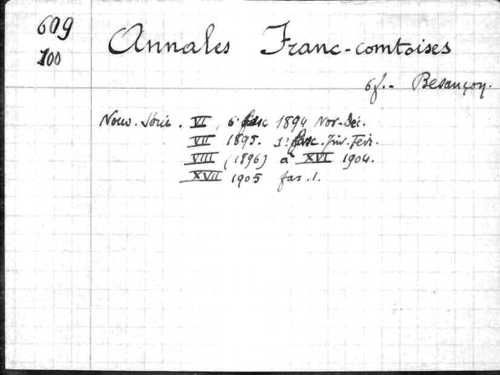 609
100
Annales Franc-comtoises
6f.- Besançon.
Nouv. Série. VI, 6e fasc 1894 Nov-Déc.
VII 1895. 1e fasc. Jiv. Fév.
VIII (1896) à XVI 1904.
XVII 1905 fas. 1.